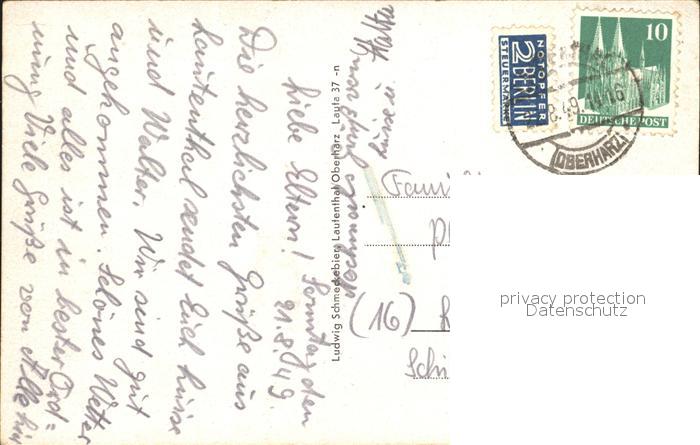 Sonntag, den
21.8.49.
Liebe Eltern!
Die herzlichsten Grüße aus
Lautenthal sendet Euch Luise
und Walter. Wir sind gut
angekommen. Schönes Wetter
und alles ist in bester Ord=
nung Viele Grüße von
Luise u.
Ludwig Schmeckebier, Lautenthal Oberharz Lauta 37 -n
NOTOPFER
2 BERLIN
STEUERMARKE
10
DEUTSCHE POST
(OBERHARZ)
Fami
(16)
privacy protection
Datenschutz